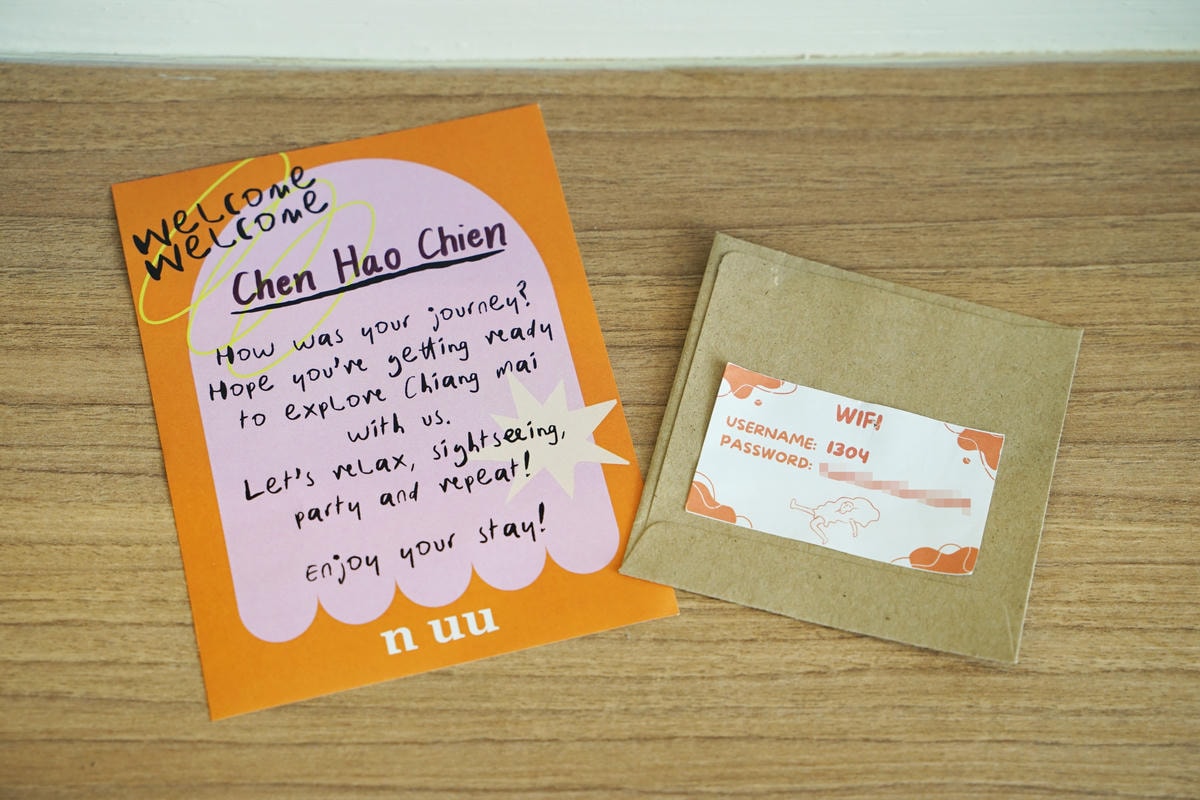 welcome
welcome
Chen Hao Chien
How was your journey?
Hope you're getting ready
to explore Chiang mai
with us.
Let's relax, sightseeing,
party and repeat!
Enjoy your stay!
n uu
WIFI
USERNAME: 1304
PASSWORD: